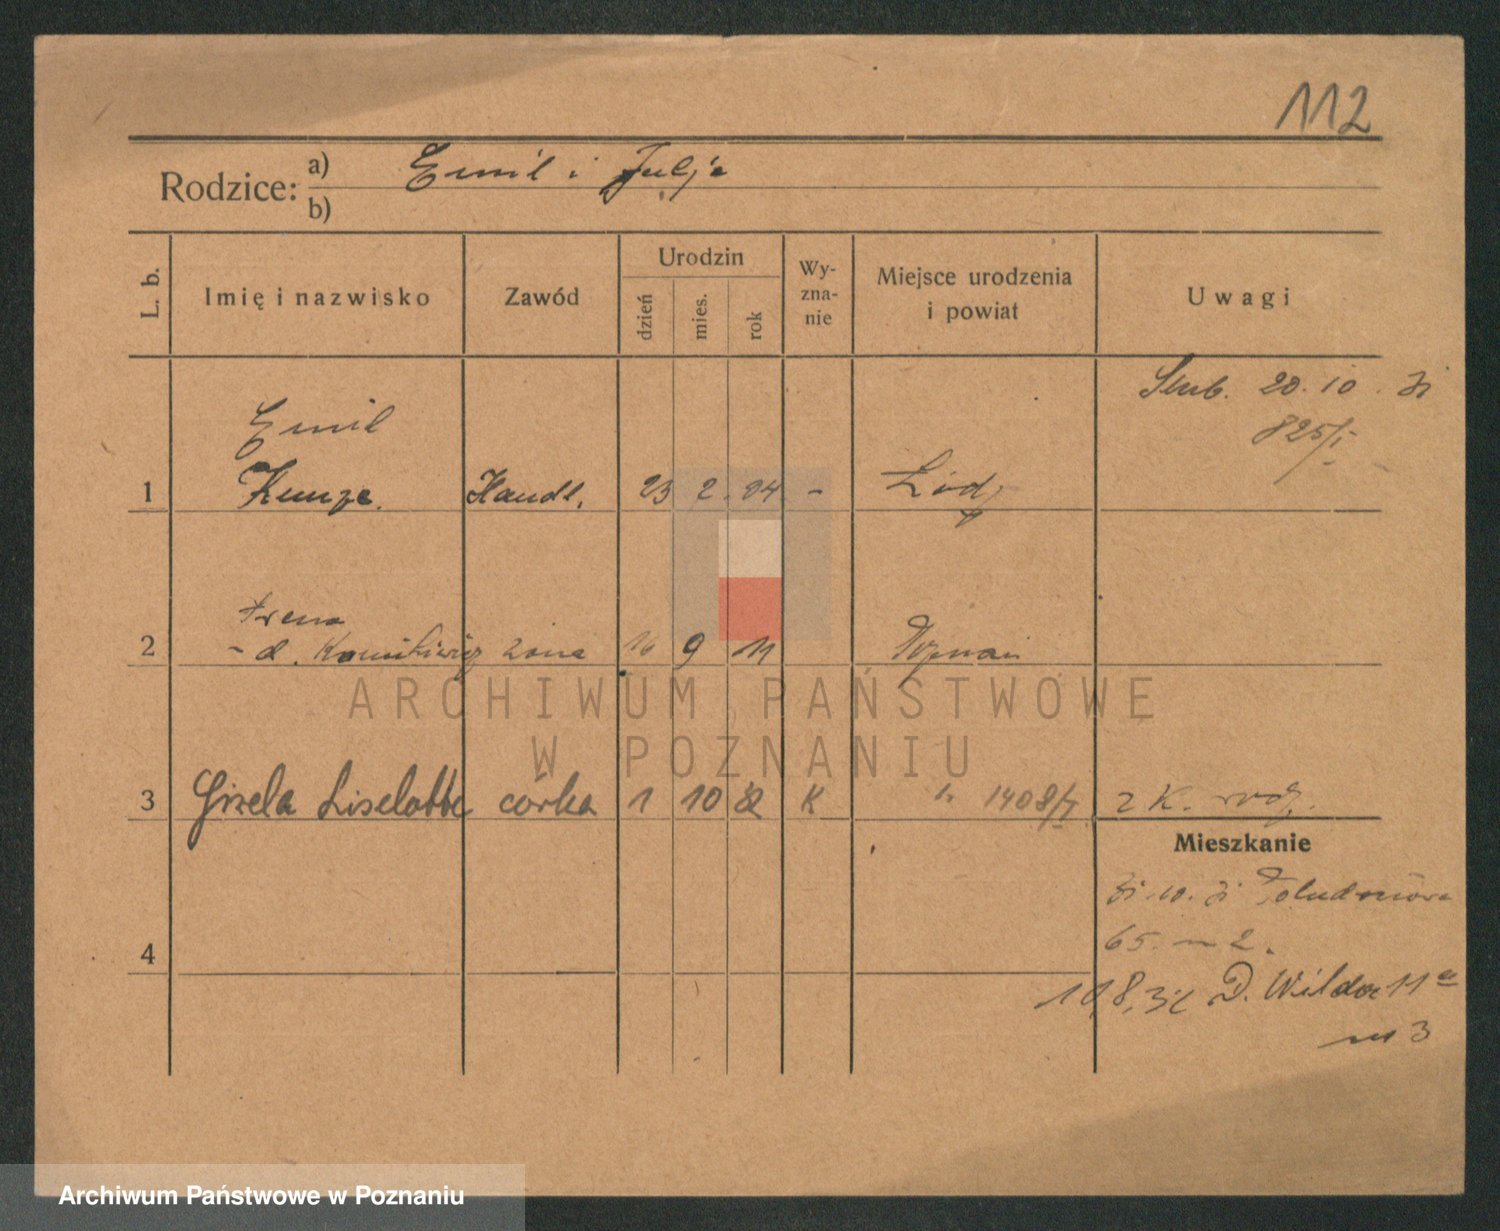 112
Rodzice: a) Emil i Julja
b)
L. b. Imię i nazwisko Zawód Urodzin dzień mies. rok Wy-zna-nie Miejsce urodzenia i powiat Uwagi
Emil
1 Kunze. Handl. 23 2. 04 - Łódź
20. 10. 31
825/I
Irena
2 - d. żona 16 9 11 Poznań
3 Gisela Liselotte córka 1 10 K 1408/ 2 K.
Mieszkanie
31.10.31 Południowa
65. m 2.
4
10,8,32 D. Wilda 11a
m 3
ARCHIWUM PAŃSTWOWE
W POZNANIU
Archiwum Państwowe w Poznaniu